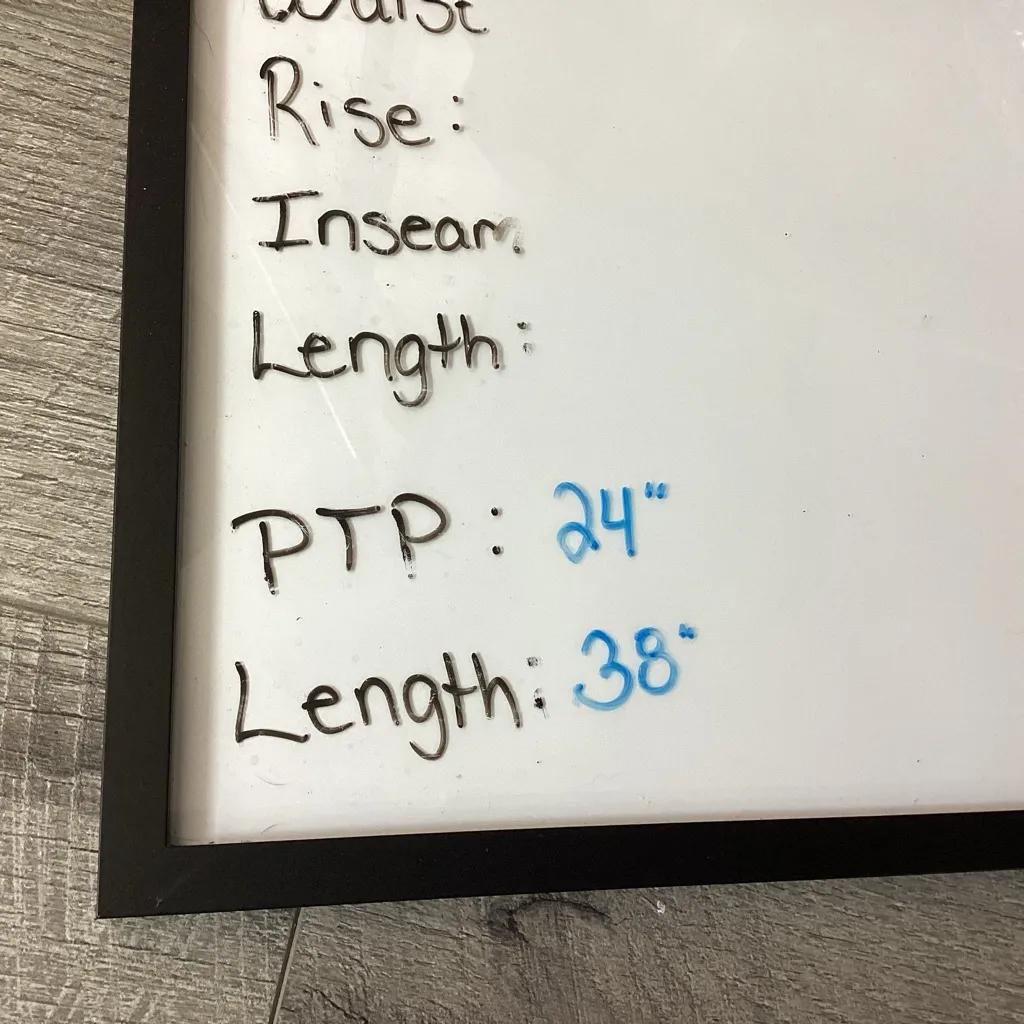 Waist
Rise:
Inseam
Length:
PTP: 24"
Length: 38"